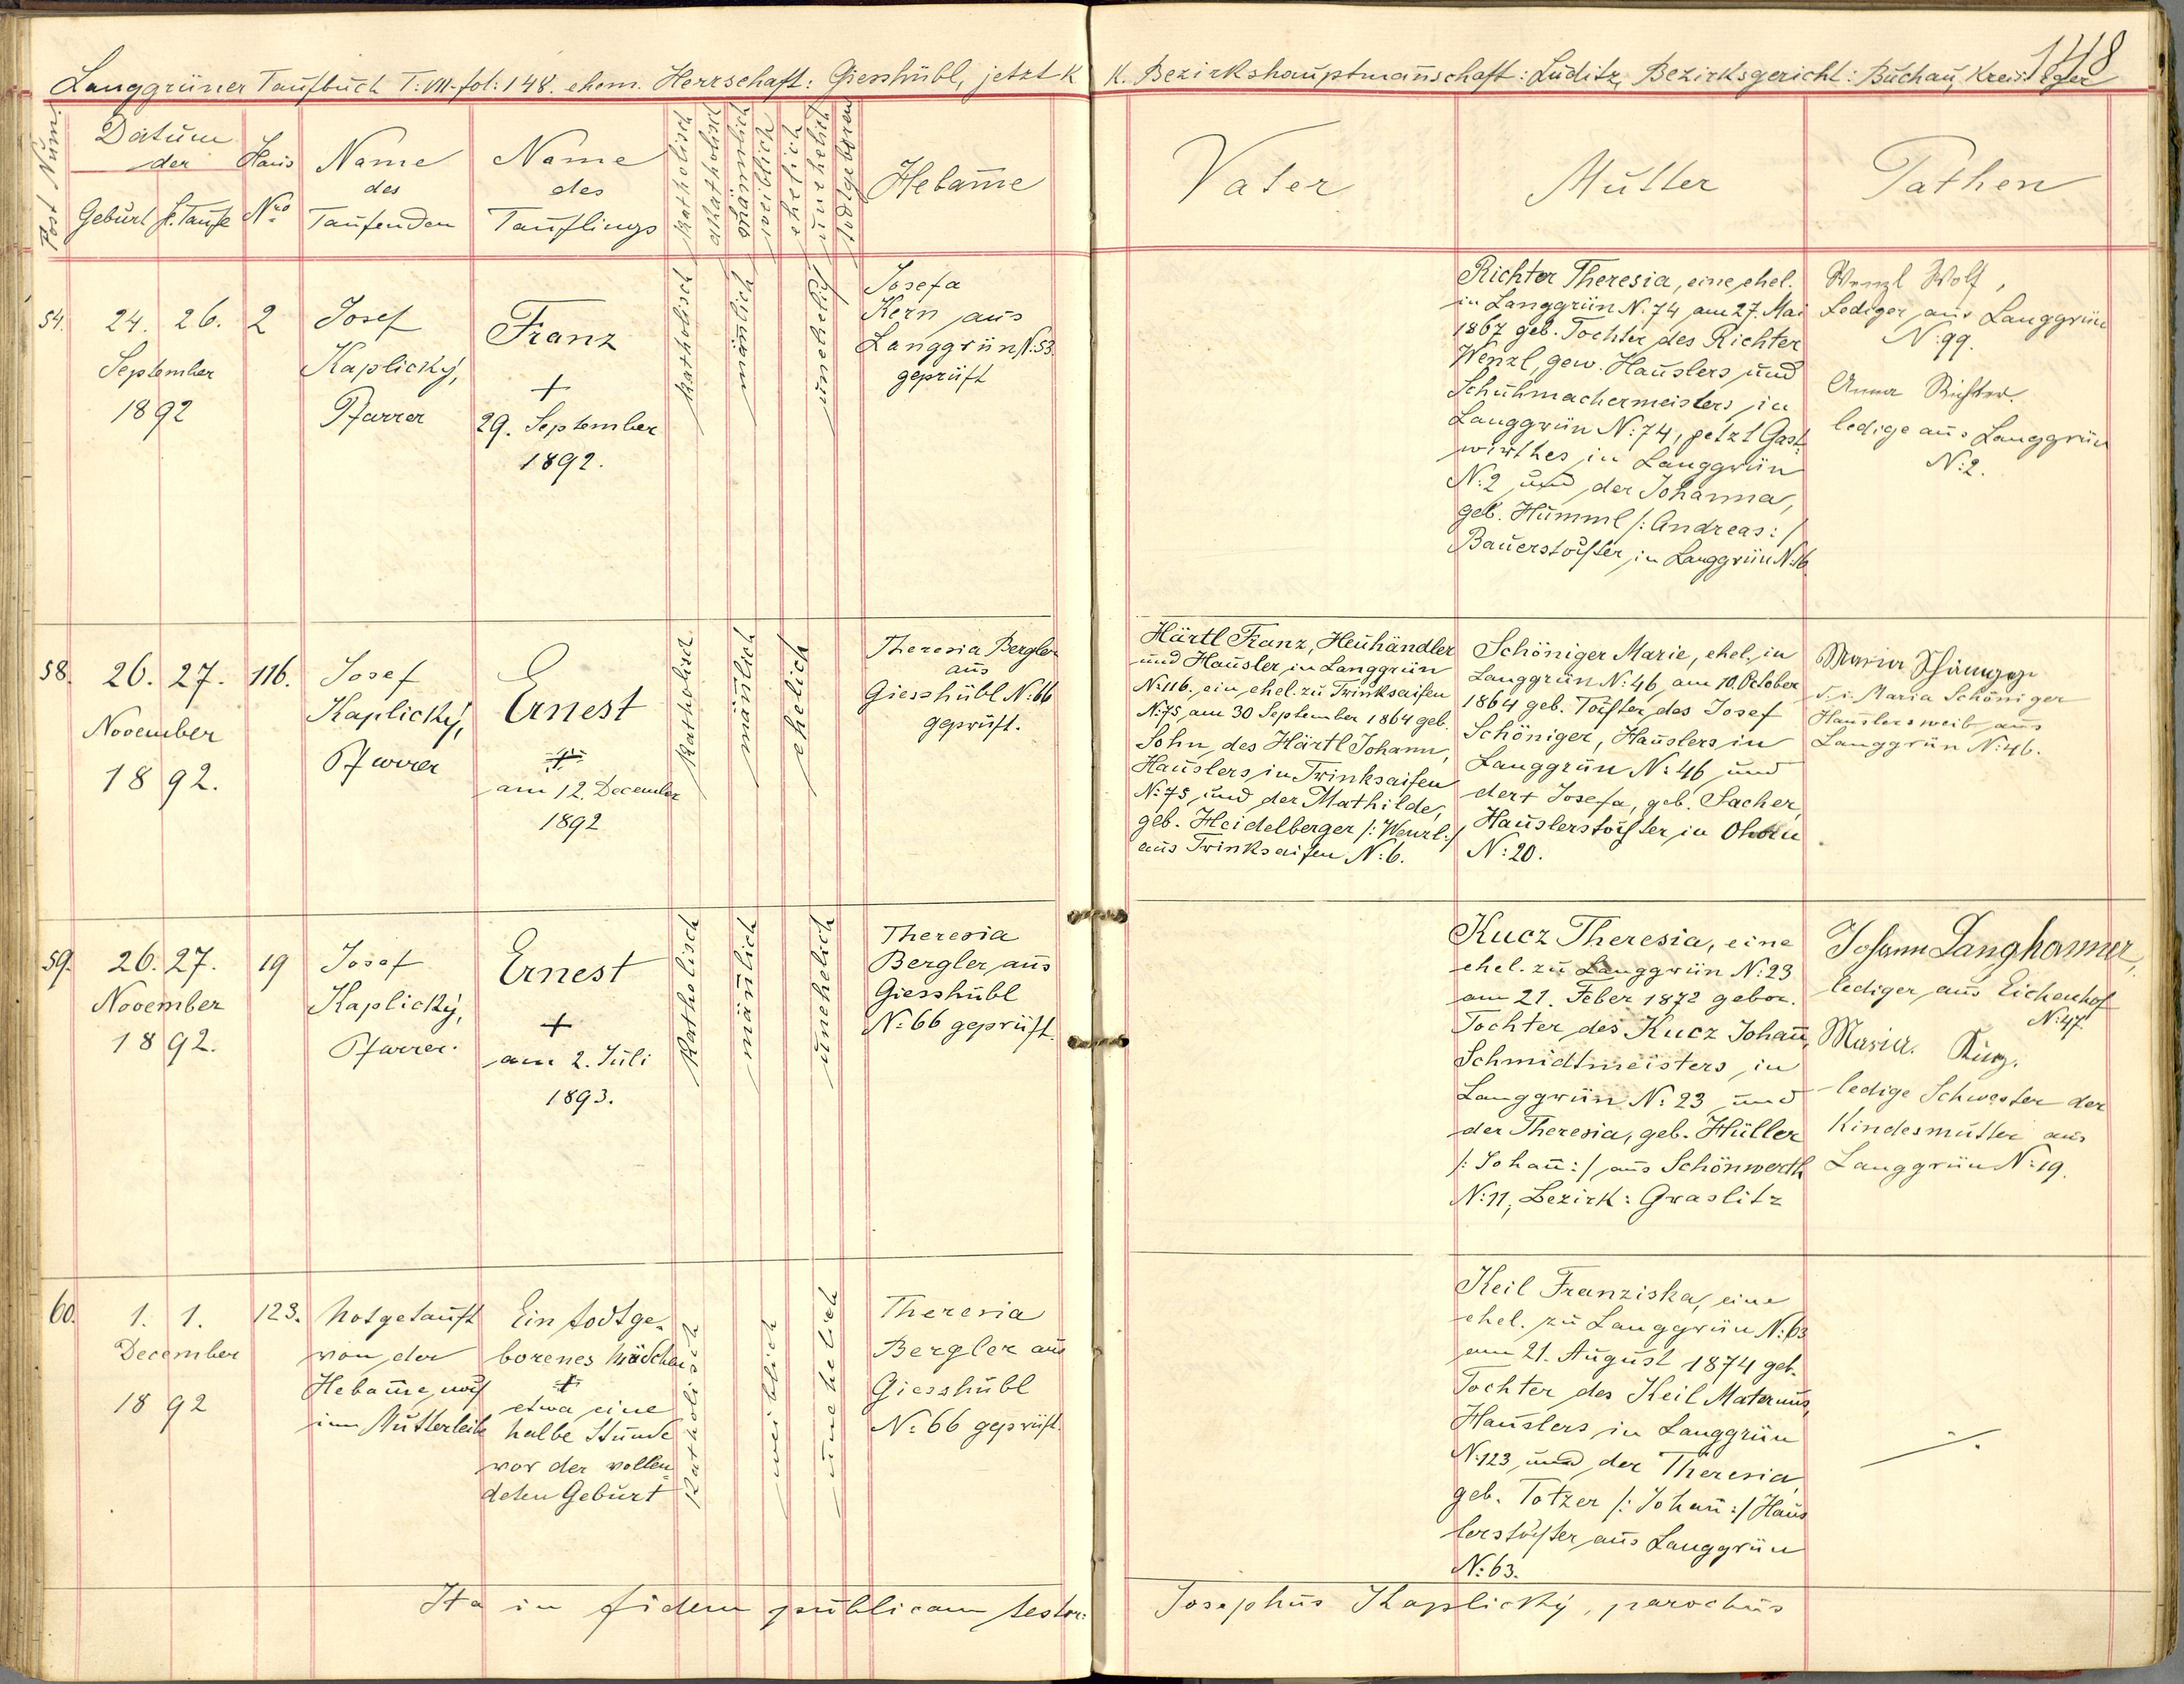 148
Langgrüner Taufbuch T: VII. fol: 148. ehem. Herrschaft: Giesshübl, jetzt K. K. Bezirkshauptmañschaft: Luditz, Bezirksgericht: Buchau, Kreis: Eger
Post Num.
Datum
der
Geburt
h. Taufe
Haus
Nro
Name
des
Taufenden
Name
des
Täuflings
katholisch
akatholisch
mäñnlich
weiblich
ehelich
unehelich
todtgeboren
Hebam̄e
Vater
Mutter
Pathen
54.
24. 26.
September
1892
2
Josef
Kaplický,
Pfarrer
Franz
+
29. September
1892.
katholisch
mäñlich
unehelich
Josefa
Kern aus
Langgrün N: 53.
geprüft
Richter Theresia, eine ehel.
in Langgrün N: 74 am 27. Mai
1867 geb. Tochter des Richter
Wenzl, gew. Häuslers und
Schuhmachermeisters in
Langgrün N: 74, jetzt Gast
wirthes in Langgrün
N: 2 und der Johanna,
geb. Humml /: Andreas: /
Bauerstochter in Langgrün N: 16
Wenzl Wolf,
Lediger aus Langgrün
N: 99.
Anna Richter.
ledige aus Langgrün
N: 2.
58.
26. 27.
November
1892.
116.
Josef
Kaplický,
Pfarrer
Ernest
+
am 12. December
1892
katholisch
mäñlich
ehelich
Theresia Bergler
aus
Giesshübl N: 66
geprüft.
Härtl Franz, Heuhändler
und Häusler in Langgrün
N: 116., ein ehel. zu Trinksaifen
N: 75 am 30 September 1864 geb.
Sohn des Härtl Johann,
Häuslers in Trinksaifen
N: 75 und der Mathilde,
geb. Heidelberger /: Wenzl: /
aus Trinksaifen N: 6.
Schöniger Marie, ehel. in
Langgrün N: 46 am 10. October
1864 geb. Tochter des Josef
Schöniger, Häuslers in
Langgrün N: 46 und
der + Josefa, geb. Sacher,
Häuslerstochter in Ohorn
N: 20.
Maria
d. i. Maria Schöniger
Häuslersweib aus
Langgrün N: 46.
59.
26. 27.
November
1892.
19
Josef
Kaplický,
Pfarrer.
Ernest
+
am 2. Juli
1893.
katholisch
mäñlich
unehelich
Theresia
Bergler aus
Giesshübl
N: 66 geprüft.
Kucz Theresia, eine
ehel. zu Langgrün N: 23
am 21. Feber 1872 gebor.
Tochter des Kucz Johañ,
Schmidtmeisters in
Langgrün N: 23 und
der Theresia, geb. Hüller
/: Johañ: / aus Schönwerth
N: 11, Bezirk: Graslitz
Johann Langhammer,
lediger aus Eichenhof
N: 47.
Maria
ledige Schwester der
Kindesmutter aus
Langgrün N: 19.
60.
1. 1.
December
1892
123.
Notgetauft
von der
Hebam̄e noch
im Mutterleib
Ein todtge-
borenes Mädchen
+
etwa eine
halbe Stunde
vor der vollen-
deten Geburt
katholisch
weiblich
unehelich
Theresia
Bergler aus
Giesshübl
N: 66 geprüft.
Keil Franziska, eine
ehel. zu Langgrün N: 63
am 21. August 1874 geb.
Tochter des Keil Maternus,
Häuslers in Langgrün
N: 123 und der Theresia
geb. Totzer /: Johañ: / Häus
lerstochter aus Langgrün
N: 63.
Ita in fidem publicam testor: Josephus Kaplický, parochus